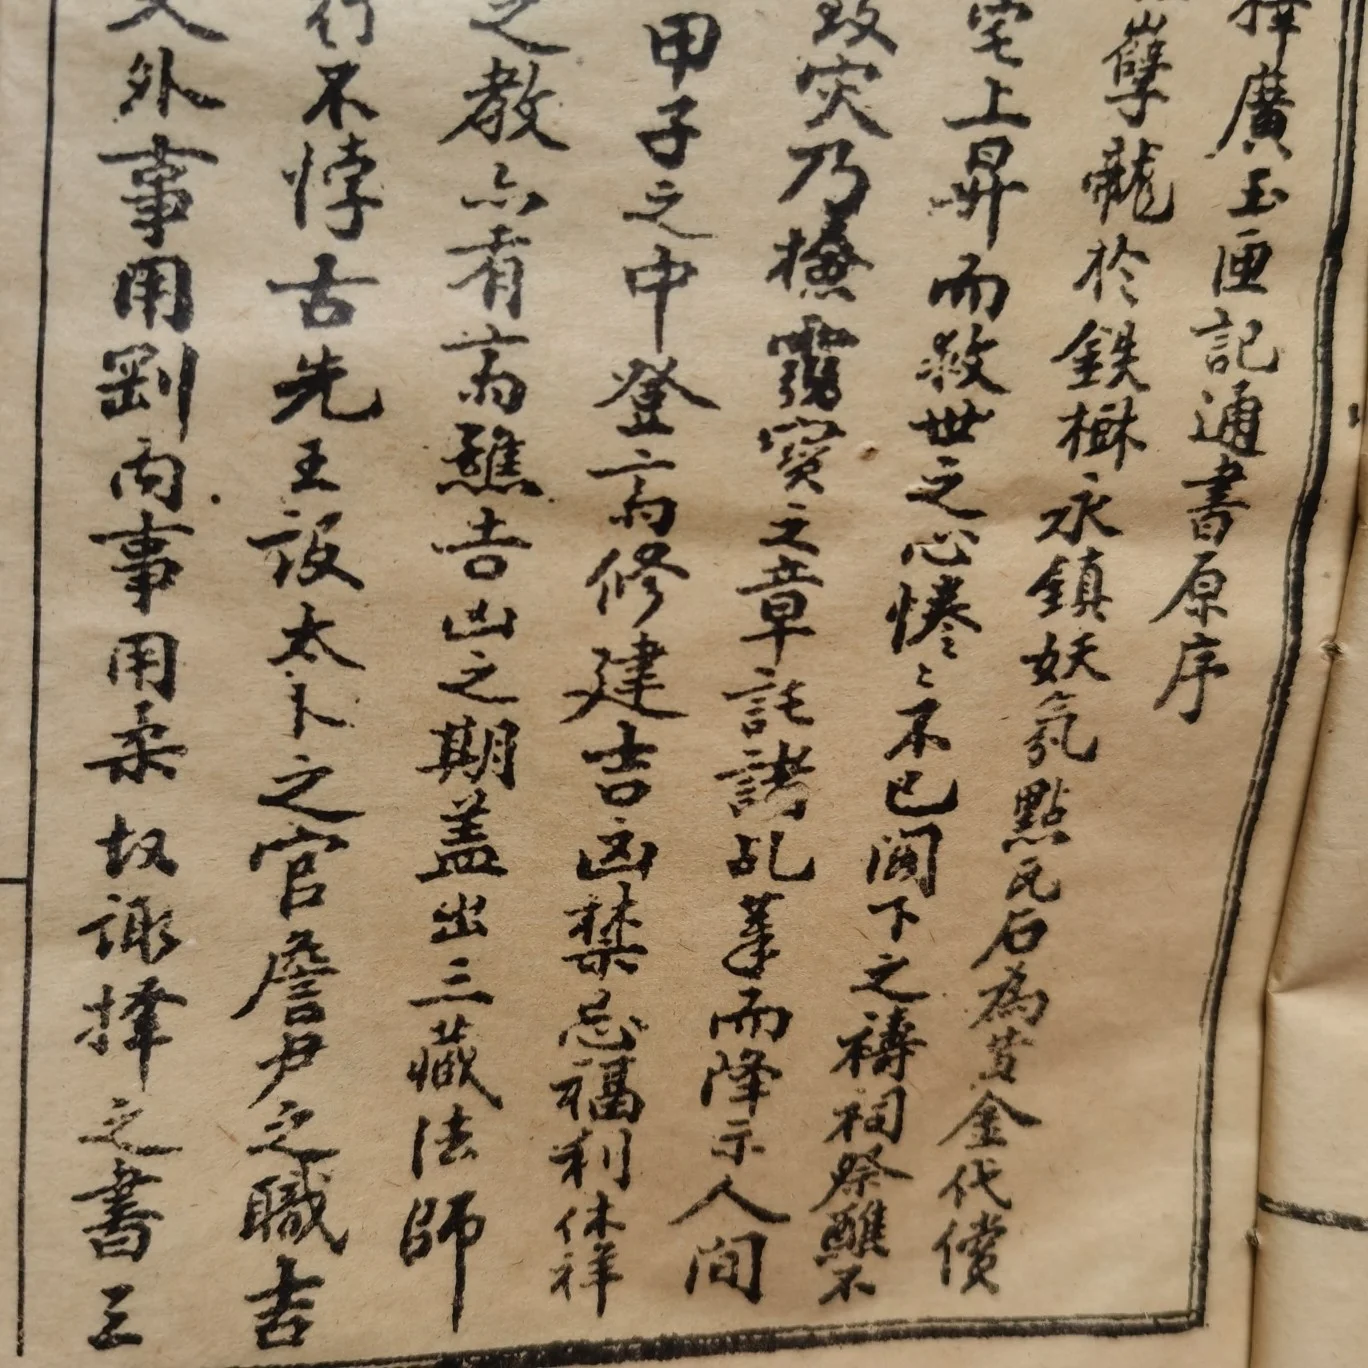 擇廣玉匣記通書原序
孽龍於鉄樹永鎮妖氛點瓦石為黄金代償
宅上昇而救世之心惓〻不已閣下之禱祠祭醮不
致灾乃撫靈寳之章託諸乩筆而降示人间
甲子之中登斋修建吉凶禁忌福利休祥
之教亦有斋醮吉凶之期盖出三藏法師
行不悖古先王設太卜之官詹尹之職吉
外事用剛内事用柔故諏擇之書三